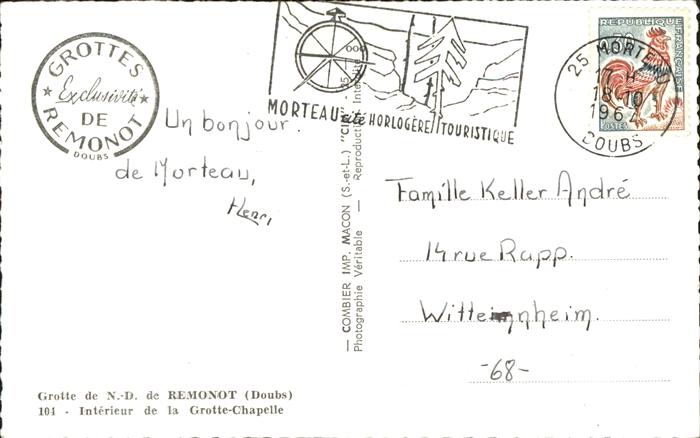 GROTTES
Exclusivité
DE
REMONOT
DOUBS
MORTEAU cité HORLOGÈRE TOURISTIQUE
RÉPUBLIQUE FRANÇAISE
POSTES
25 MORTEAU
17 H
18-10
1967
DOUBS
Un bonjour
de Morteau,
Henri
— COMBIER IMP. MACON (S.-et-L.) "CIM" —
Photographie Véritable — Reproduction
Famille Keller André
14 rue Rapp.
Wittenheim.
-68-
Grotte de N.-D. de REMONOT (Doubs)
104 - Intérieur de la Grotte-Chapelle